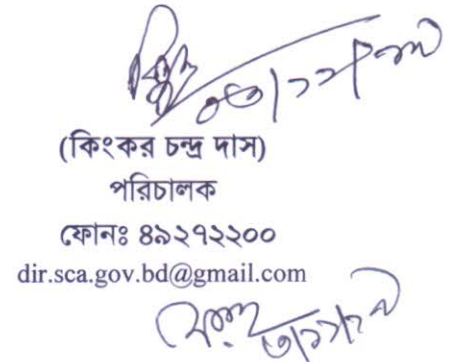 (কিংকর চন্দ্র দাস)
পরিচালক
ফোনঃ ৪৯২৭২২০০
dir.sca.gov.bd@gmail.com